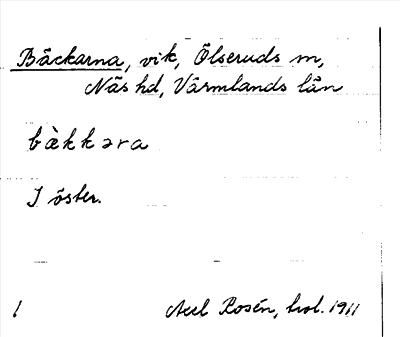 Bäckarna, vik, Ölseruds sn,
Näs hd, Värmlands län
bæ̀kkəra
I öster.
1 Axel Rosén, hol. 1911